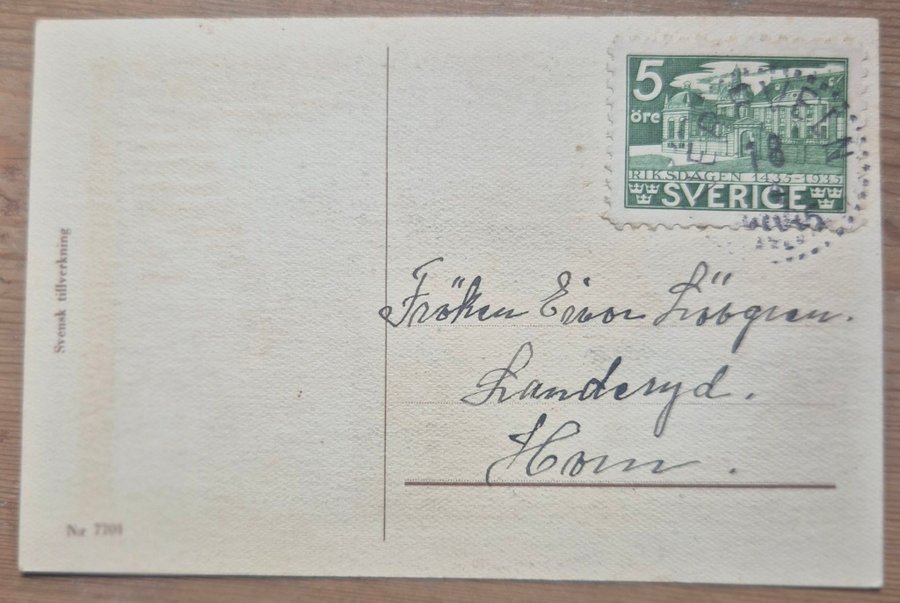 5
öre
RIKSDAGEN 1435-1935
SVERIGE
18
Fröken Eivor Lövgren.
Landeryd.
Horn.
Svensk tillverkning
N:r 7701